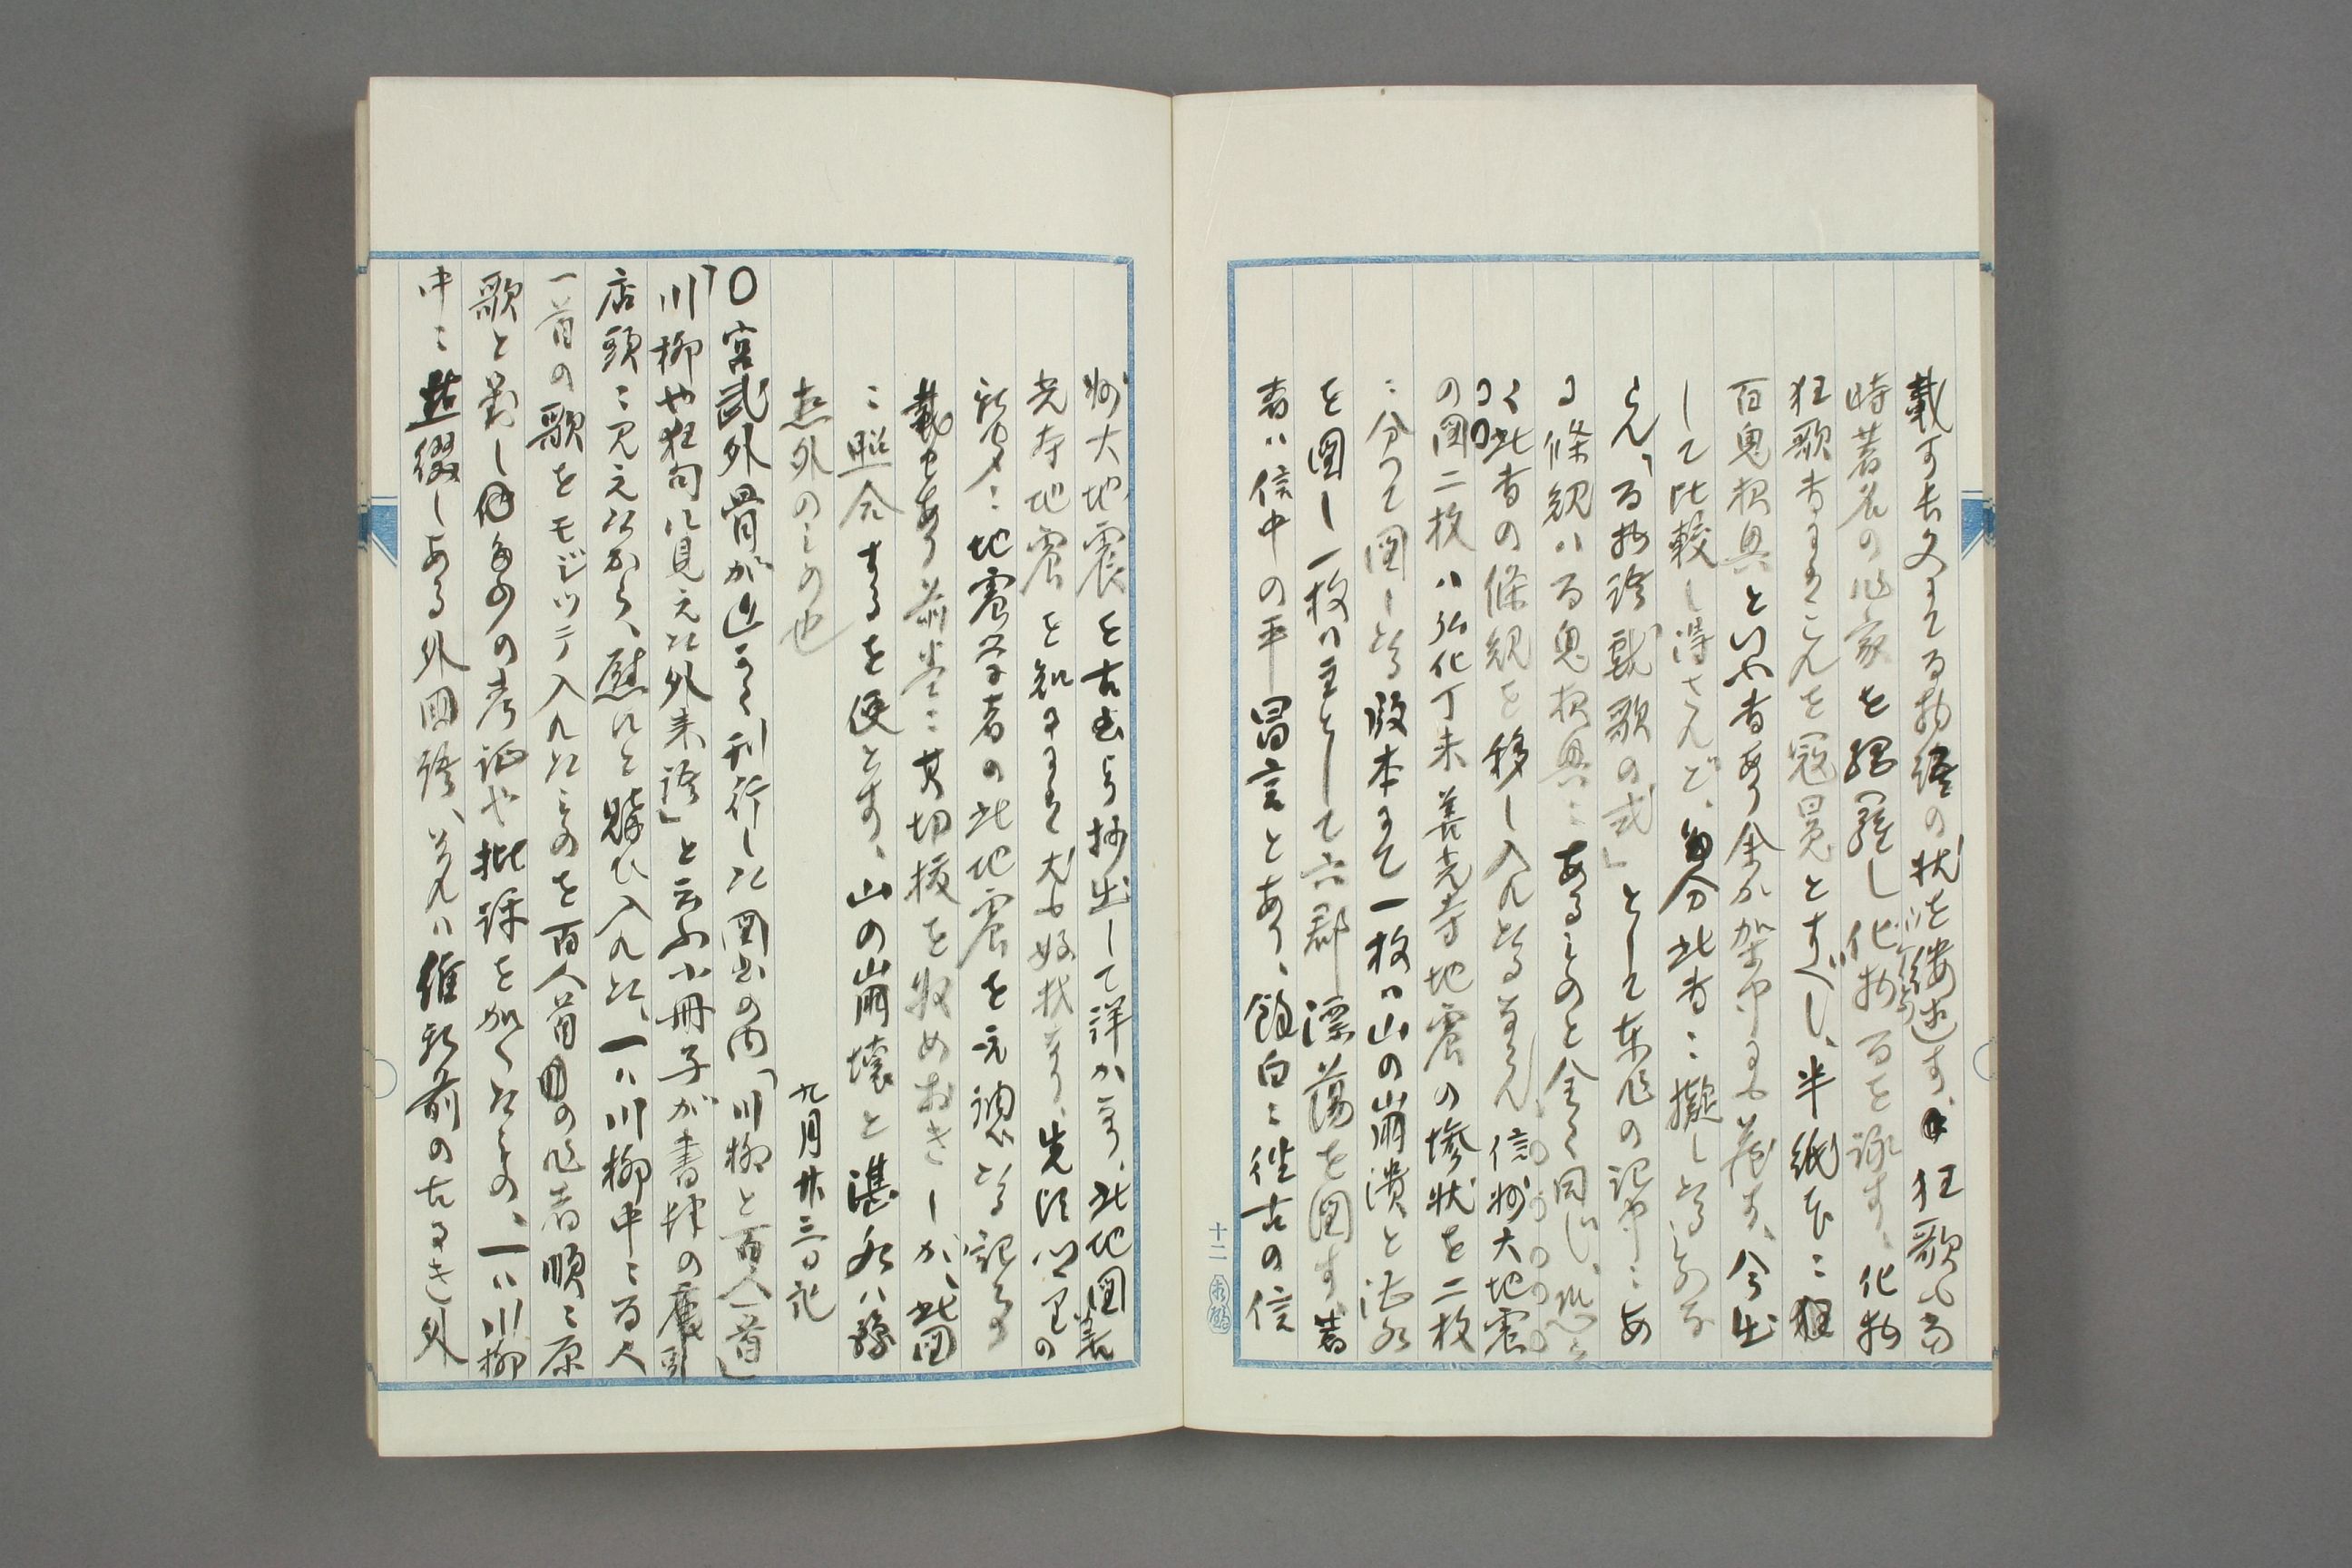 載す長文にてる物語の状を縷述す、狂歌ハ當
時著名の作家を網羅し化物百を詠す、化物
狂歌書にてこれを冠冕とすべし、半紙本ニ
百鬼夜興といふ書あり余が架中にも蔵す、今出
して比較し得ざれど、多分此書ニ擬し
らん、「百物語戯歌の式」として本作の記中ニあ
る條規ハ百鬼夜興ニあるものと全く同じ、恐ら
く此書の條規を移し入れたるならん 信州大地震
の図二枚ハ弘化丁未善光寺地震の惨状を二枚
ニ分つて図したる 版本にて一枚ハ山の崩潰と湛水
を図し一枚ハ主として六郡漂蕩を図す、著
者ハ信中の平昌言とあり、餘白ニ往古の信
十二
州大地震を古書より抄出して詳かなり、此地図善
光寺地震を知るにハ尤も好状なり、先頃心理の
ニ地震学者の此地震を元禄と記るの
載せあり前巻ニ其切抜を収めおきしが、此図
ニ照合するを便とす、山の崩壊と湛水ハ
意外のもの也
九月廿三日記
〇宮武外骨が近ごろ刊行した図書の内「川柳と百人一首」
「川柳や狂句に見えた外来語」と云ふ小冊子が書肆の
店頭ニ見えたから、慰にと購ひ入れた、一ハ川柳中ニ百人
一首の歌をモジツテ入れたものを百人首の作者順ニ原
歌と對し多少の考証や批評を加へたもの、一ハ川柳
中ニ點綴しある外国語、若くハ維新前の古るき外